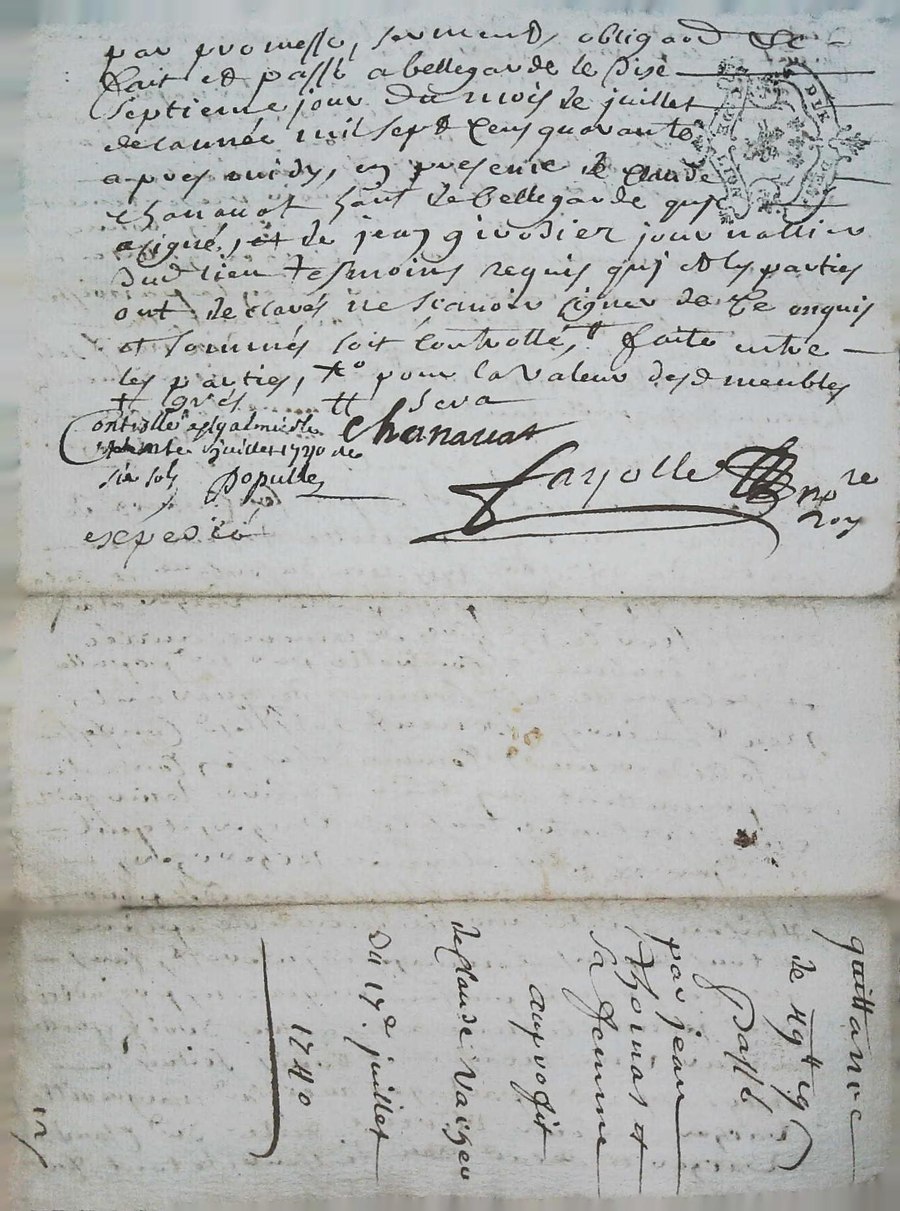 par promesse, serment, obligaõn &c
fait et passé a bellegarde le dixe
septieme jour du mois de juillet
de lannée mil sept cens quarante
apres midy, en presence de Claude
Chanauat hant de bellegarde quy
a signé, et de jean girodier journallier
dud lieu tesmoins requis quj et les parties
ont declarés ne scauoir signer de ce enquis
et sommés soit controllé, tt faite entre
les parties, pour la valeur desd meubles
sera
Controllé a st galmier le
juillet 1740 de
six sols Populle
expedié
Chanauat
fayolle nore
roy
GEN DE LION
quittance
de 49tt 19
passé
par jean
thouas et
sa femme
au profit
de Claude Vaisen
Du 17e juillet
1740